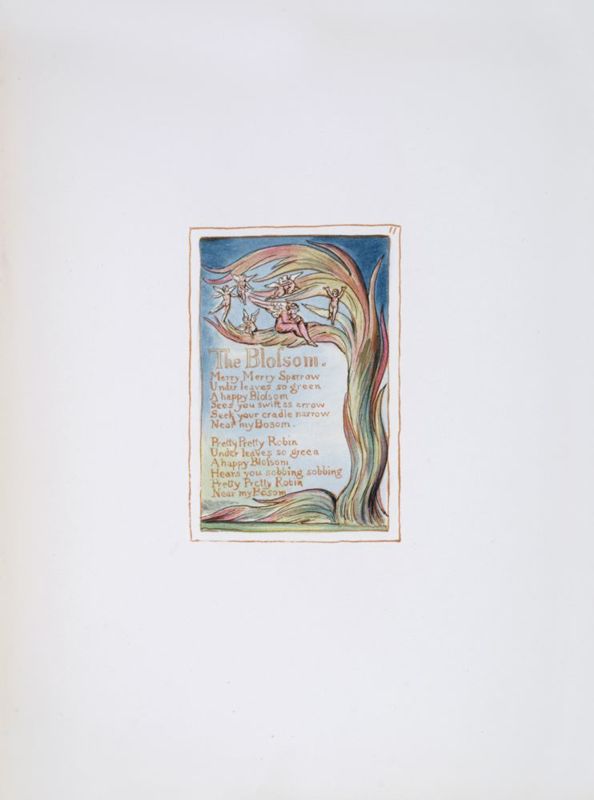 11
The Bloſsom.
Merry Merry Sparrow
Under leaves so green
A happy Bloſsom
Sees you swift as arrow
Seek your cradle narrow
Near my Bosom.
Pretty Pretty Robin
Under leaves so green
A happy Bloſsom
Hears you sobbing sobbing
Pretty Pretty Robin
Near my Bosom